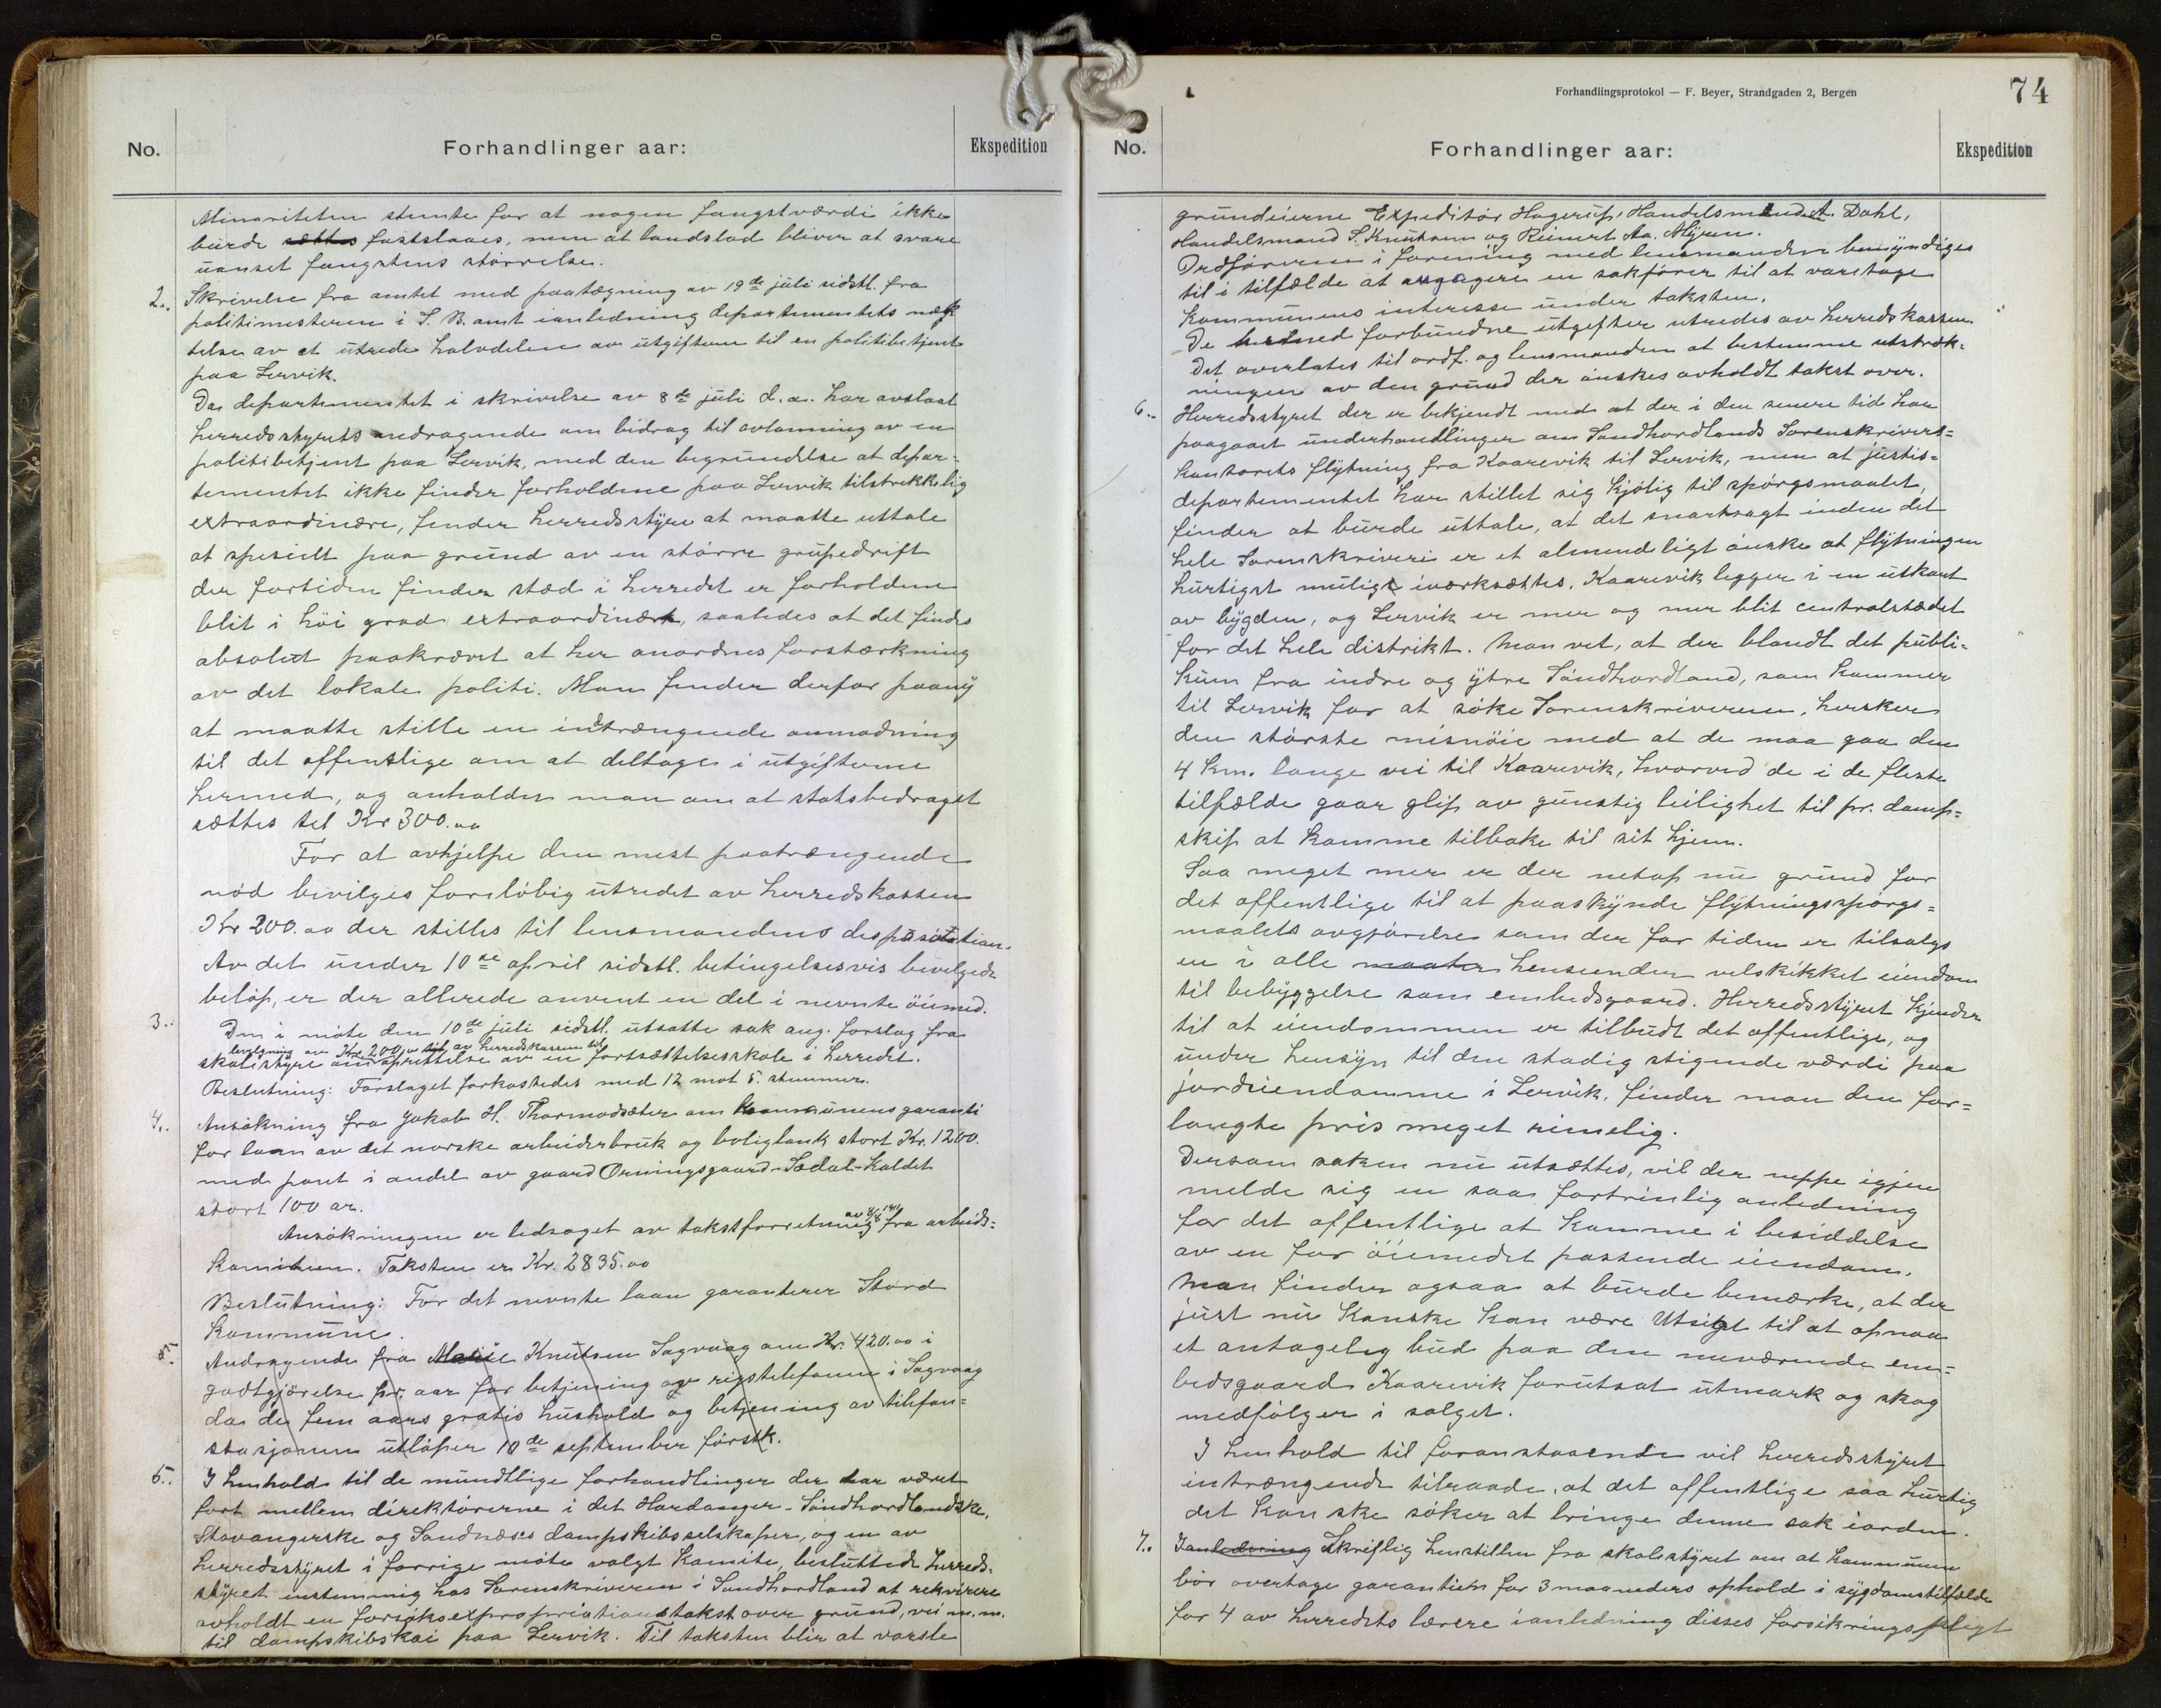 No.
Forhandlinger aar:
Ekspedition
Minoriteten stemte for at nogen fangstværdi ikke
burde sættes fastslaaes, men at landslod bliver at svare
uanset fangstens størrelse.
2. Skrivelse fra amtet med paategning av 19de juli sidstl. fra
politimesteren i S. B. amt ianledning departementets næg
telse av at utrede halvdelen av utgiftene til en politibetjent
paa Lervik.
Da departementet i skrivelse av 8de juli d.a. har avslaat
herredsstyrets andragende om bidrag til avlønning av en
politibetjent paa Lervik, med den begrundelse at depar=
tementet ikke finder forholdene paa Lervik tilstrekkelig
extraordinære, finder herredsstyre at maatte uttale
at specielt paa grund av en større grupedrift
der fortiden finder stæd i herredet er forholdene
blit i høi grad extraordinære, saaledes at det findes
absolut paakrævet at her anordnes forstærkning
av det lokale politi. Man finder derfor paany
at maatte stille en indtrængende anmodning
til det offentlige om at deltage i utgifterne
hermed, og anholder man om at statsbedraget
sættes til Kr 300.00
For at avhjelpe den mest paatrængende
nød bevilges foreløbig utredet av herredskassen
Kr 200.00 der stilles til lensmandens desposition.
Av det under 10de april sidstl. betingelsesvis bevilgede
beløp, er der allerede anvent en del i nevnte øiemed.
3. Den i møte den 10de juli sidstl. utsatte sak ang. forslag fra
bevilgning av Kr. 200.00 til av herredskassen til
skolestyre om oprettelse av en fortsættelsesskole i herredet.
Beslutning: Forslaget forkastedes med 12 mot 5. stemmer.
4. Ansøkning fra Jakob H. Thormodsæter om kommunens garanti
for laan av det norske arbeiderbruk og boligbank stort Kr. 1200.
med pant i andel av gaard Orningsgaard-Sødal-kaldet
stort 100 ar.
av 8/8 1910
Ansøkningen er ledsaget av takstforretning fra arbeids=
komiteen. Taksten er Kr. 2835.00
Beslutning: For det nevnte laan garanterer Stord
kommune.
5. Andragende fra Marie Knutsen Sagvaag om Kr. 420.00 i
godtgjørelse pr. aar for betjening av rigstelefonen i Sagvaag
da de fem aars gratis hushold og betjening av telefon=
stasjonen utløper 10de september førstk.
5. I henhold til de mundtlige forhandlinger der har været
ført mellem direktørerne i det Hardanger-Søndhordlandske,
Stavangerske og Sandnæses dampskibsselskaper, og en av
herredsstyret i forrige møte valgt komite, besluttede herreds=
styret enstemmig hos Sorenskriveren i Søndhordland at rekvirere
avholdt en forsøksexpropriationstakst over grund, vei m.m.
til dampskibskai paa Lervik. Til taksten blir at varsle
Forhandlingsprotokol — F. Beyer, Strandgaden 2, Bergen
74
No.
Forhandlinger aar:
Ekspedition
grundeierne Expeditør Hagerup, Handelsmand A. Dahl,
Handelsmand S. Knutsen og Reinert Aa. Myren.
Ordføreren i forening med lensmanden bemyndiges
til i tilfælde at angagere en sakfører til at varetage
kommunens interesse under taksten.
De hermed forbundne utgifter utredes av herredskassen.
Det overlates til ordf. og lensmanden at bestemme utstræk=
ningen av den grund der ønskes avholdt takst over.
6. Herredsstyret der er bekjendt med at der i den senere tid har
paagaaet underhandlinger om Søndhordlands Sorenskriver=
kontorets flytning fra Kaarevik til Lervik, men at justis=
departementet har stillet sig kjølig til spørgsmaalet,
finder at burde uttale, at det snartsagt inden det
hele Sorenskriveri er et almendeligt ønske at flytningen
hurtigst muligt iverksættes. Kaarevik legger i en utkant
av bygden, og Lervik er mer og mer blit centralstædet
for det hele distrikt. Man vet, at der blandt det publi=
kum fra indre og ytre Søndhordland, som kommer
til Lervik for at søke Sorenskriveren, hersker
den største misnøie med at de maa gaa den
4 km. lange vei til Kaarevik, hvorved de i de fleste
tilfælde gaar glip av gunstig leilighet til pr. damp=
skip at komme tilbake til sit hjem.
Saa meget mer er der netop nu grund for
det offentlige til at paaskynde flytningsspørgs=
maalets avgjørelse som der for tiden er tilsalgs
en i alle maater henseender velskikket eiendom
til bebyggelse som embedsgaard. Herredsstyret kjender
til at eiendommen er tilbudt det offentlige, og
under hensyn til den stadig stigende værdi paa
jordeiendomme i Lervik, finder man den for=
langte pris meget rimelig.
Dersom saken nu utsættes, vil der neppe igjen
melde sig en saa fortrinlig anledning
for det offentlige at komme i besiddelse
av en for øiemedet passende eiendom.
Man finder ogsaa at burde bemærke, at der
just nu kanske kan være Utsigt til at opnaa
et antagelig bud paa den nuværende em=
bedsgaard Kaarevik forutsat utmark og skog
medfølger i salget.
I henhold til foranstaaende vil herredsstyret
intrængende tilraade, at det offentlige saa hurtig
det kan ske søker at bringe denne sak iorden.
7. Ianledning Skriftlig henstillen fra skolestyret om at kommunen
bør overtage garantien for 3 maaneders ophold i sygdomstilfælde
for 4 av herredets lærere ianledning disses forsikringspligt